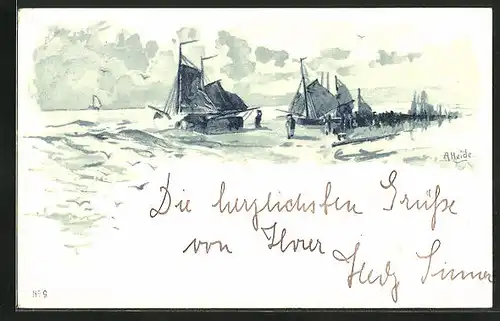 A. Heide.
Die herzlichsten Grüße
von Ihrer
Hedy
No 9